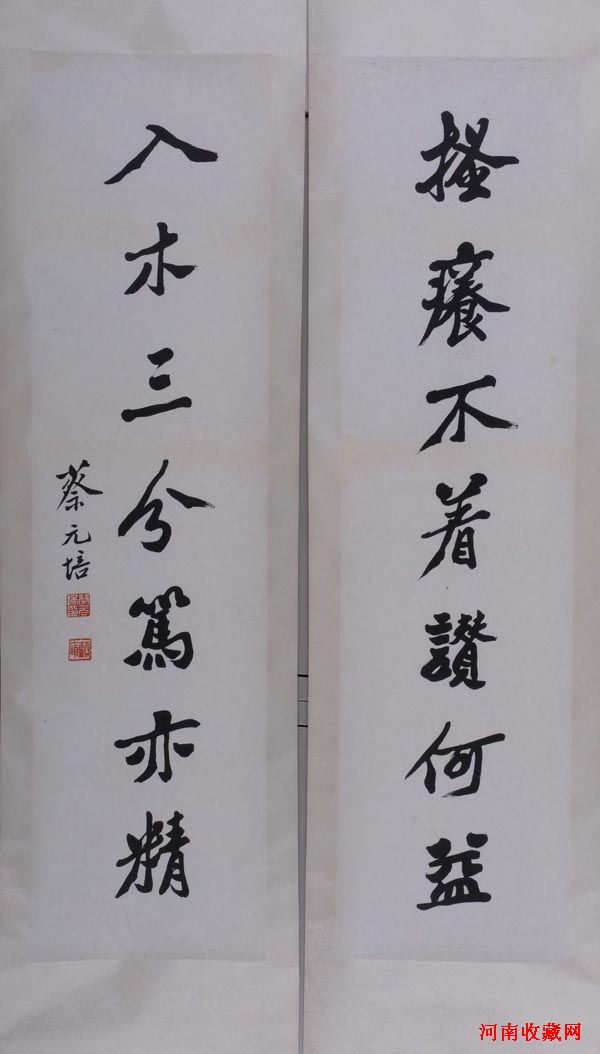 搔癢不着讚何益
入木三分駡亦精
蔡元培
河南收藏网